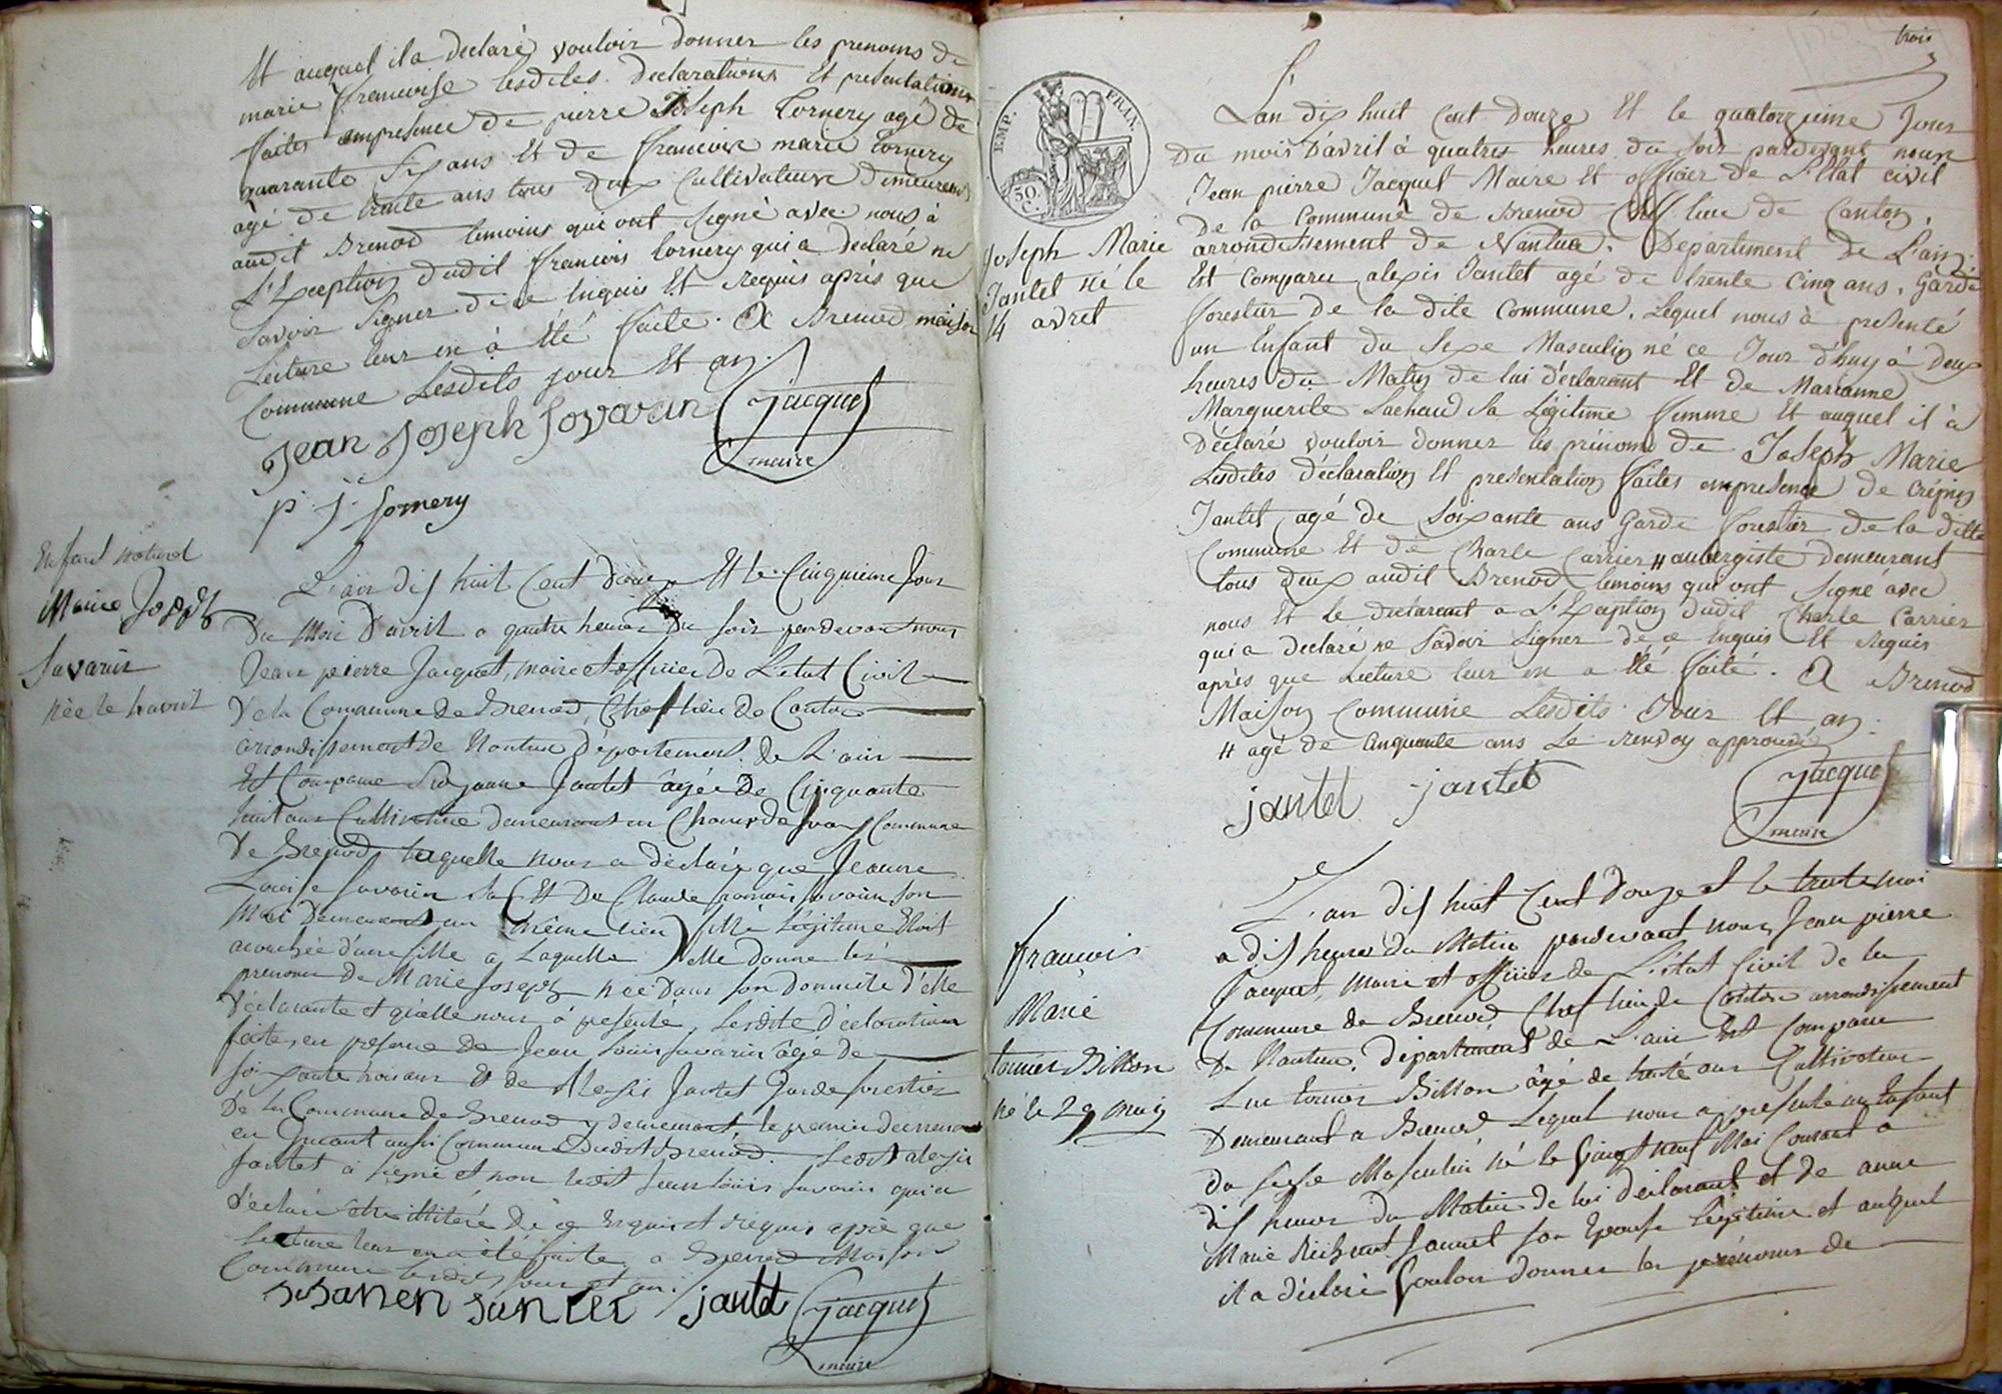 Et auquel il a declaré vouloir donner les prenoms de
marie françoise lesdites declarations Et presentations
faites empresence de pierre Joseph Tornery agé de
quarante six ans Et de françois marie tornery
agé de trente ans tous deux Cultivateurs demeurens
audit Brenod temoins qui ont signé avec nous à
L'Exception dudit francois tornery qui a declaré ne
Savoir Signer de ce Enquis Et Requis après que
Lecture leur en à Eté faite. A Brenod maison
Commune Lesdits jour Et an.
jean joseph Sovarin jacquet
maire
p. j. tornery
Enfant naturel
Marie Joseph
Savarin
née le 5 avril
L'an dix huit Cent Douze Et le Cinquieme Jour
Du Moi D'avril a quatre heures Du soir pardevant nous
Jean pierre Jacquet, maire et officier De L'etat Civil
De la Commune de Brenod, Chef lieu De Canton
arrondissement de Nantua Département de L'ain
Est Comparue Suzanne Jantet âgée De Cinquante
huit ans Cultivatrice demeurant en Commune
De Brenod, laquelle nous a déclaré que Jeanne
Louise Savarin sa (Et De Claude françois Savarin son
Mari Demeurant au même lieu) fille Légitime Etoit
acouchée d'une fille a Laquelle elle donne les
prenoms de Marie Joseph née Dans son Domicile D'elle
Déclarante et qu'elle nous à présenté, Lesdite Déclaration
faite, en presence de Jean Louis Savarin âgé de
soixante trois ans Et de Alexis Jantet Garde forestier
De la Commune de Brenod, demeurant le premier
en aussi Commune Dudit Brenod. Ledit alexis
Jantet à signé et non ledit Jean Louis Savarin qui a
Déclaré etre illitéré De ce Enquis et requis après que
Lecture leur en a été faite a Brenod Maison
Commune lesdits jour et an.
susanen janter jantet jacquet
maire
trois
3
EMP. FRAN.
50 C.
Joseph Marie
Jantet né le
14 avret
L'an dix huit Cent Douze Et le quatorzieme Jour
Du mois D'avril à quatres heures du soir pardevant nous
Jean pierre Jacquet Maire Et officier De L'Etat civil
De la Commune de Brenod Chef lieu de Canton,
arrondissement de Nantua. Departement de L'ain.
Est Comparu alexis Jantet agé de trente Cinq ans, Garde
forestier de la dite Commune. Lequel nous à présenté
un Enfant du sexe Masculin né ce Jour d'huy à Deux
heures du Matin de lui déclarant Et de Marianne
Marguerite Lachaud sa Légitime femme Et auquel il à
Déclaré vouloir donner les prénoms de Joseph Marie
Lesdites déclaration Et presentation faites empresence de Crépin
Jantet agé de Soixante ans Garde forestier de la ditte
Commune Et de Charle Carrier # aubergiste demeurant
tous deux audit Brenod temoins qui ont signé avec
nous Et le declarant a L'Exception dudit Charle Carrier
qui a declaré ne Savoir Signer de ce Enquis Et Requis
après que Lecture leur en a Eté faite. A Brenod
Maison Commune Lesdits Jour Et an.
# agé de Cinquante ans Le Renvoy approuvé
jantet jantet jacquet
maire
francois
Marie
tornier Billon
né le 29 may
L'an dix huit Cent Douze et le trente mai
a dix heures du Matin pardevant nous, Jean pierre
Jacquet, Maire et officier de L'état Civil de la
Commune de Brenod Chef lieu de Canton arrondissement
De Nantua, département de L'ain Est Comparu
Luc tornier Billon âgé de trente ans Cultivateur
Demeurant a Brenod Lequel nous a présenté un Enfant
Du sexe Masculin né le Vingt neuf Mai Courant a
dix heures du Matin de lui déclarant et de anne
Marie son Epouse Légitime et auquel
il a déclaré Vouloir donner les prénoms de